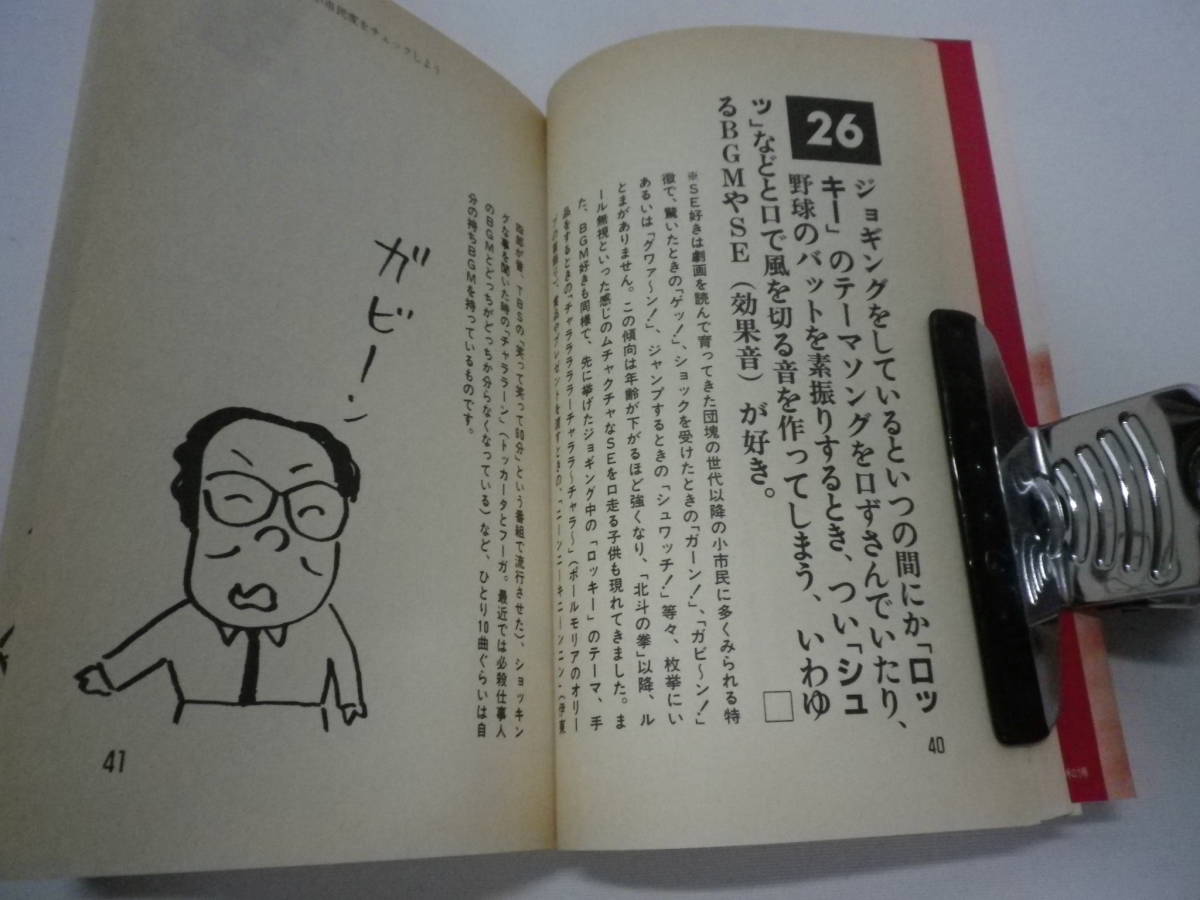 26
ジョギングをしているといつの間にか「ロッ
キー」のテーマソングを口ずさんでいたり、
野球のバットを素振りするとき、つい「シュ
ッ」などと口で風を切る音を作ってしまう、いわゆ
るBGMやSE（効果音）が好き。
□
※SE好きは劇画を読んで育ってきた団塊の世代以降の小市民に多くみられる特
徴で、驚いたときの「ゲッ！」、ショックを受けたときの「ガーン！」、「ガビ〜ン！」
あるいは「グワァ〜ン！」、ジャンプするときの「シュワッチ！」等々、枚挙にい
とまがありません。この傾向は年齢が下がるほど強くなり、「北斗の拳」以降、ル
ール無視といった感じのムチャクチャなSEを口走る子供も現れてきました。ま
た、BGM好きも同様で、先に挙げたジョギング中の「ロッキー」のテーマ、手
品をするときの「チャラララララーチャララ〜チャラ〜」（ポールモリアのオリー
40
四朗が昔、TBSの「笑って笑って60分」という番組で流行させた）、ショッキン
グな事を聞いた時の「チャララーン」（トッカータとフーガ。最近では必殺仕事人
のBGMとどっちがどっちか分らなくなっている）など、ひとり10曲ぐらいは自
分の持ちBGMを持っているものです。
ガビーン
41
市民度をチェックしよう